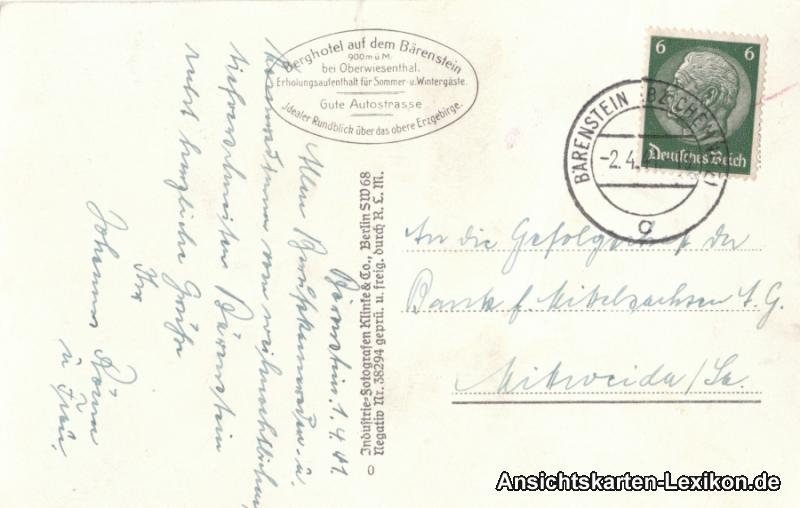 Berghotel auf dem Bärenstein
900 m ü. M.
bei Oberwiesenthal.
Erholungsaufenthalt für Sommer- u. Wintergäste.
Gute Autostrasse
Idealer Rundblick über das obere Erzgebirge.
Bärenstein, 1.4.41.
Allen Berufskameraden u.
vom weihnachtlichen
tiefverschneiten Bärenstein
recht herzliche Grüße
Ihr
Johannes
u. Frau.
Industrie-Fotografen Klinke & Co., Berlin SW 68
Negativ Nr. 38294 geprü. u. freig. durch R. L. M.
6 6
Deutsches Reich
BÄRENSTEIN
-2.4.
g
An die Gefolgschaft der
Bank f. Mittelsachsen A. G.
Mittweida/Sa.
Ansichtskarten-Lexikon.de